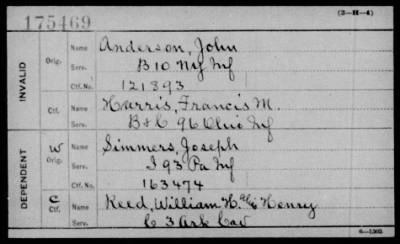 175469 (3-H-4)
INVALID
Orig.
Name Anderson, John
Serv. B 10 NY Inf
Ctf. No. 121893
Ctf.
Name Harris, Francis M.
Serv. B & C 96 Ohio Inf
DEPENDENT
W
Orig.
Name Simmers, Joseph
Serv. I 93 Pa Inf
Ctf. No. 163474
C
Ctf.
Name Reed, William H. a/c Henry
Serv. C 3 Ark Cav